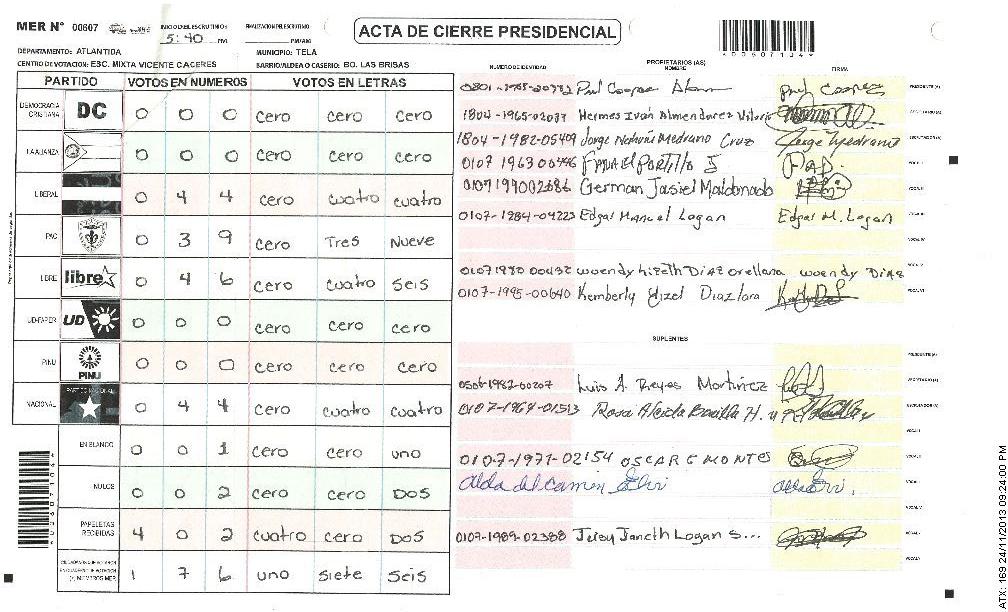 MER N° 00607 INICIO DEL ESCRUTINIO 5:40 PM FINALIZACION DEL ESCRUTINIO PM/AM ACTA DE CIERRE PRESIDENCIAL
DEPARTAMENTO: ATLANTIDA MUNICIPIO: TELA
CENTRO DE VOTACION: ESC. MIXTA VICENTE CACERES BARRIO/ALDEA O CASERIO: BO. LAS BRISAS
PARTIDO VOTOS EN NUMEROS VOTOS EN LETRAS
DEMOCRACIA CRISTIANA DC 0 0 0 cero cero cero
LA ALIANZA 0 0 0 cero cero cero
LIBERAL 0 4 4 cero cuatro cuatro
PAC 0 3 9 cero Tres Nueve
LIBRE libre 0 4 6 cero cuatro seis
UD-FAPER UD 0 0 0 cero cero cero
PINU PINU 0 0 0 cero cero cero
NACIONAL PARTIDO NACIONAL 0 4 4 cero cuatro cuatro
EN BLANCO 0 0 1 cero cero uno
NULOS 0 0 2 cero cero DOS
PAPELETAS RECIBIDAS 4 0 2 cuatro cero DOS
1 7 6 uno siete seis
NUMERO DE IDENTIDAD PROPIETARIOS (AS) NOMBRE FIRMA
PRESIDENTE (A)
1804-1965-02037 Hermes Iván Almendarez
1804-1982-05409 Jorge Nahúm Medrano Cruz Jorge Medrano
0107 1963
0107199002686 German Jasiel Maldonado
0107-1984-04223 Edgar Manuel Logan Edgar M. Logan
0107 1980 00432 woendy Lizeth Díaz orellana woendy Díaz
0107-1995-00640 Kemberly Gizel Diaz Lara
SUPLENTES
PRESIDENTE (A)
0506-1982-00207 Luis A. Reyes Martinez
0107-1964-01513 Rosa
0107-1971-02154 OSCAR G MONTES
Alda del Carmen
0107-1989-02388 Janeth Logan S...
ATX: 169 24/11/2013 09:24:00 PM